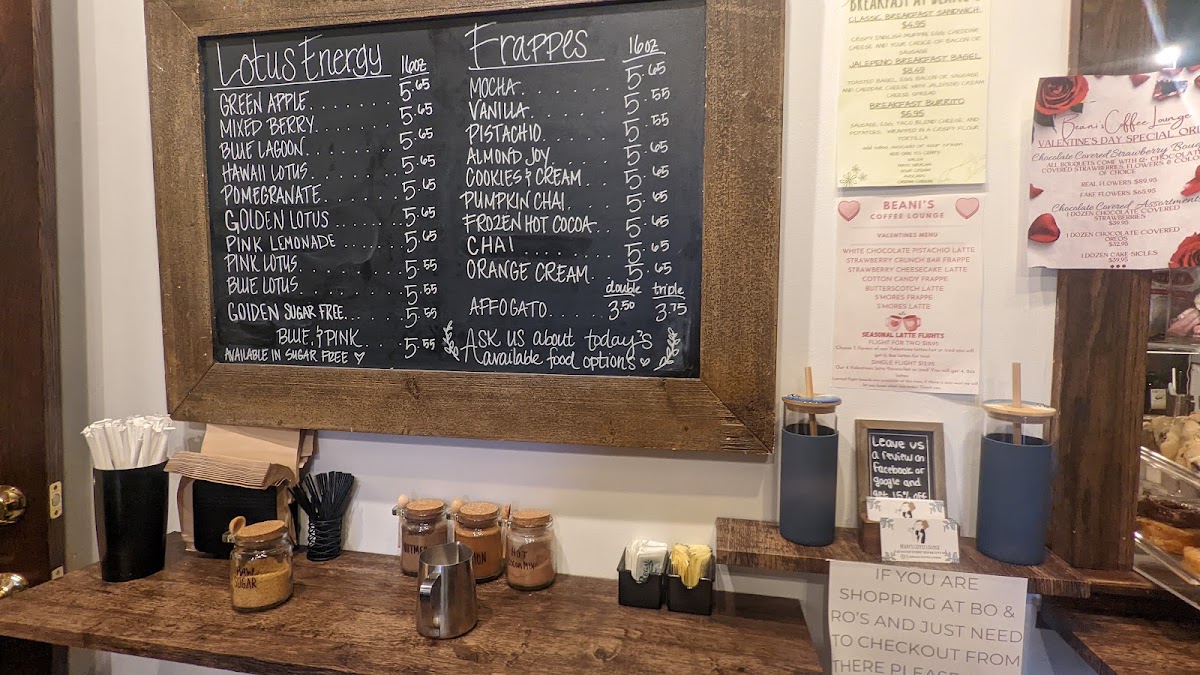 Lotus Energy 16oz
GREEN APPLE. . . . . . . 5.65
MIXED BERRY. . . . . . . 5.65
BLUE LAGOON. . . . . . . 5.65
HAWAII LOTUS. . . . . . . 5.65
POMEGRANATE . . . . . . 5.65
GOLDEN LOTUS . . . . . . 5.65
PINK LEMONADE . . . . . 5.65
PINK LOTUS. . . . . . . . 5.55
BLUE LOTUS. . . . . . . . 5.55
GOLDEN SUGAR FREE. . . . 5.55
BLUE, & PINK. . . . 5.55
AVAILABLE IN SUGAR FREE ♡
Frappes 16oz
MOCHA. . . . . . . . 5.65
VANILLA. . . . . . . 5.55
PISTACHIO. . . . . . 5.55
ALMOND JOY. . . . . 5.65
COOKIES & CREAM. . . 5.65
PUMPKIN CHAI. . . . 5.65
FROZEN HOT COCOA. . 5.65
CHAI . . . . . . . . 5.65
ORANGE CREAM. . . . 5.65
double triple
AFFOGATO. . . . . 3.50 3.75
ASK US about today's
available food options
BREAKFAST AT BEANI'S
CLASSIC BREAKFAST SANDWICH
CRISPY ENGLISH MUFFIN, EGG, CHEDDAR
CHEESE AND YOUR CHOICE OF BACON OR
SAUSAGE
JALEPENO BREAKFAST BAGEL
TOASTED BAGEL, EGG, BACON OR SAUSAGE
AND CHEDDAR CHEESE WITH JALEPENO CREAM
CHEESE SPREAD
BREAKFAST BURRITO
$6.95
SAUSAGE, EGG, TACO BLEND CHEESE, AND
POTATOES, WRAPPED IN A CRISPY FLOUR
TORTILLA
BEANI'S
COFFEE LOUNGE
VALENTINES MENU
WHITE CHOCOLATE PISTACHIO LATTE
STRAWBERRY CRUNCH BAR FRAPPE
STRAWBERRY CHEESECAKE LATTE
COTTON CANDY FRAPPE
BUTTERSCOTCH LATTE
S'MORES FRAPPE
S'MORES LATTE
SEASONAL LATTE FLIGHTS
FLIGHT FOR TWO
SINGLE FLIGHT
Beani's Coffee Lounge
VALENTINE'S DAY SPECIAL OR
Chocolate Covered Strawberry Bouq
ALL BOUQUETS COME WITH 12- CHOCOLATE
COVERED STRAWBERRIES, FLOWERS &
OF CHOICE
REAL FLOWERS $89.95
FAKE FLOWERS $65.95
Chocolate Covered Assortments
1 DOZEN CHOCOLATE COVERED
STRAWBERRIES
1 DOZEN CHOCOLATE COVERED
OREOS
1 DOZEN CAKE-SICLES
Leave us
a review on
Facebook or
google and
get 15% off
RAW
SUGAR
NUTMEG
HOT
COCOA MIX
IF YOU ARE
SHOPPING AT BO &
RO'S AND JUST NEED
TO CHECKOUT FROM
THERE PLEASE